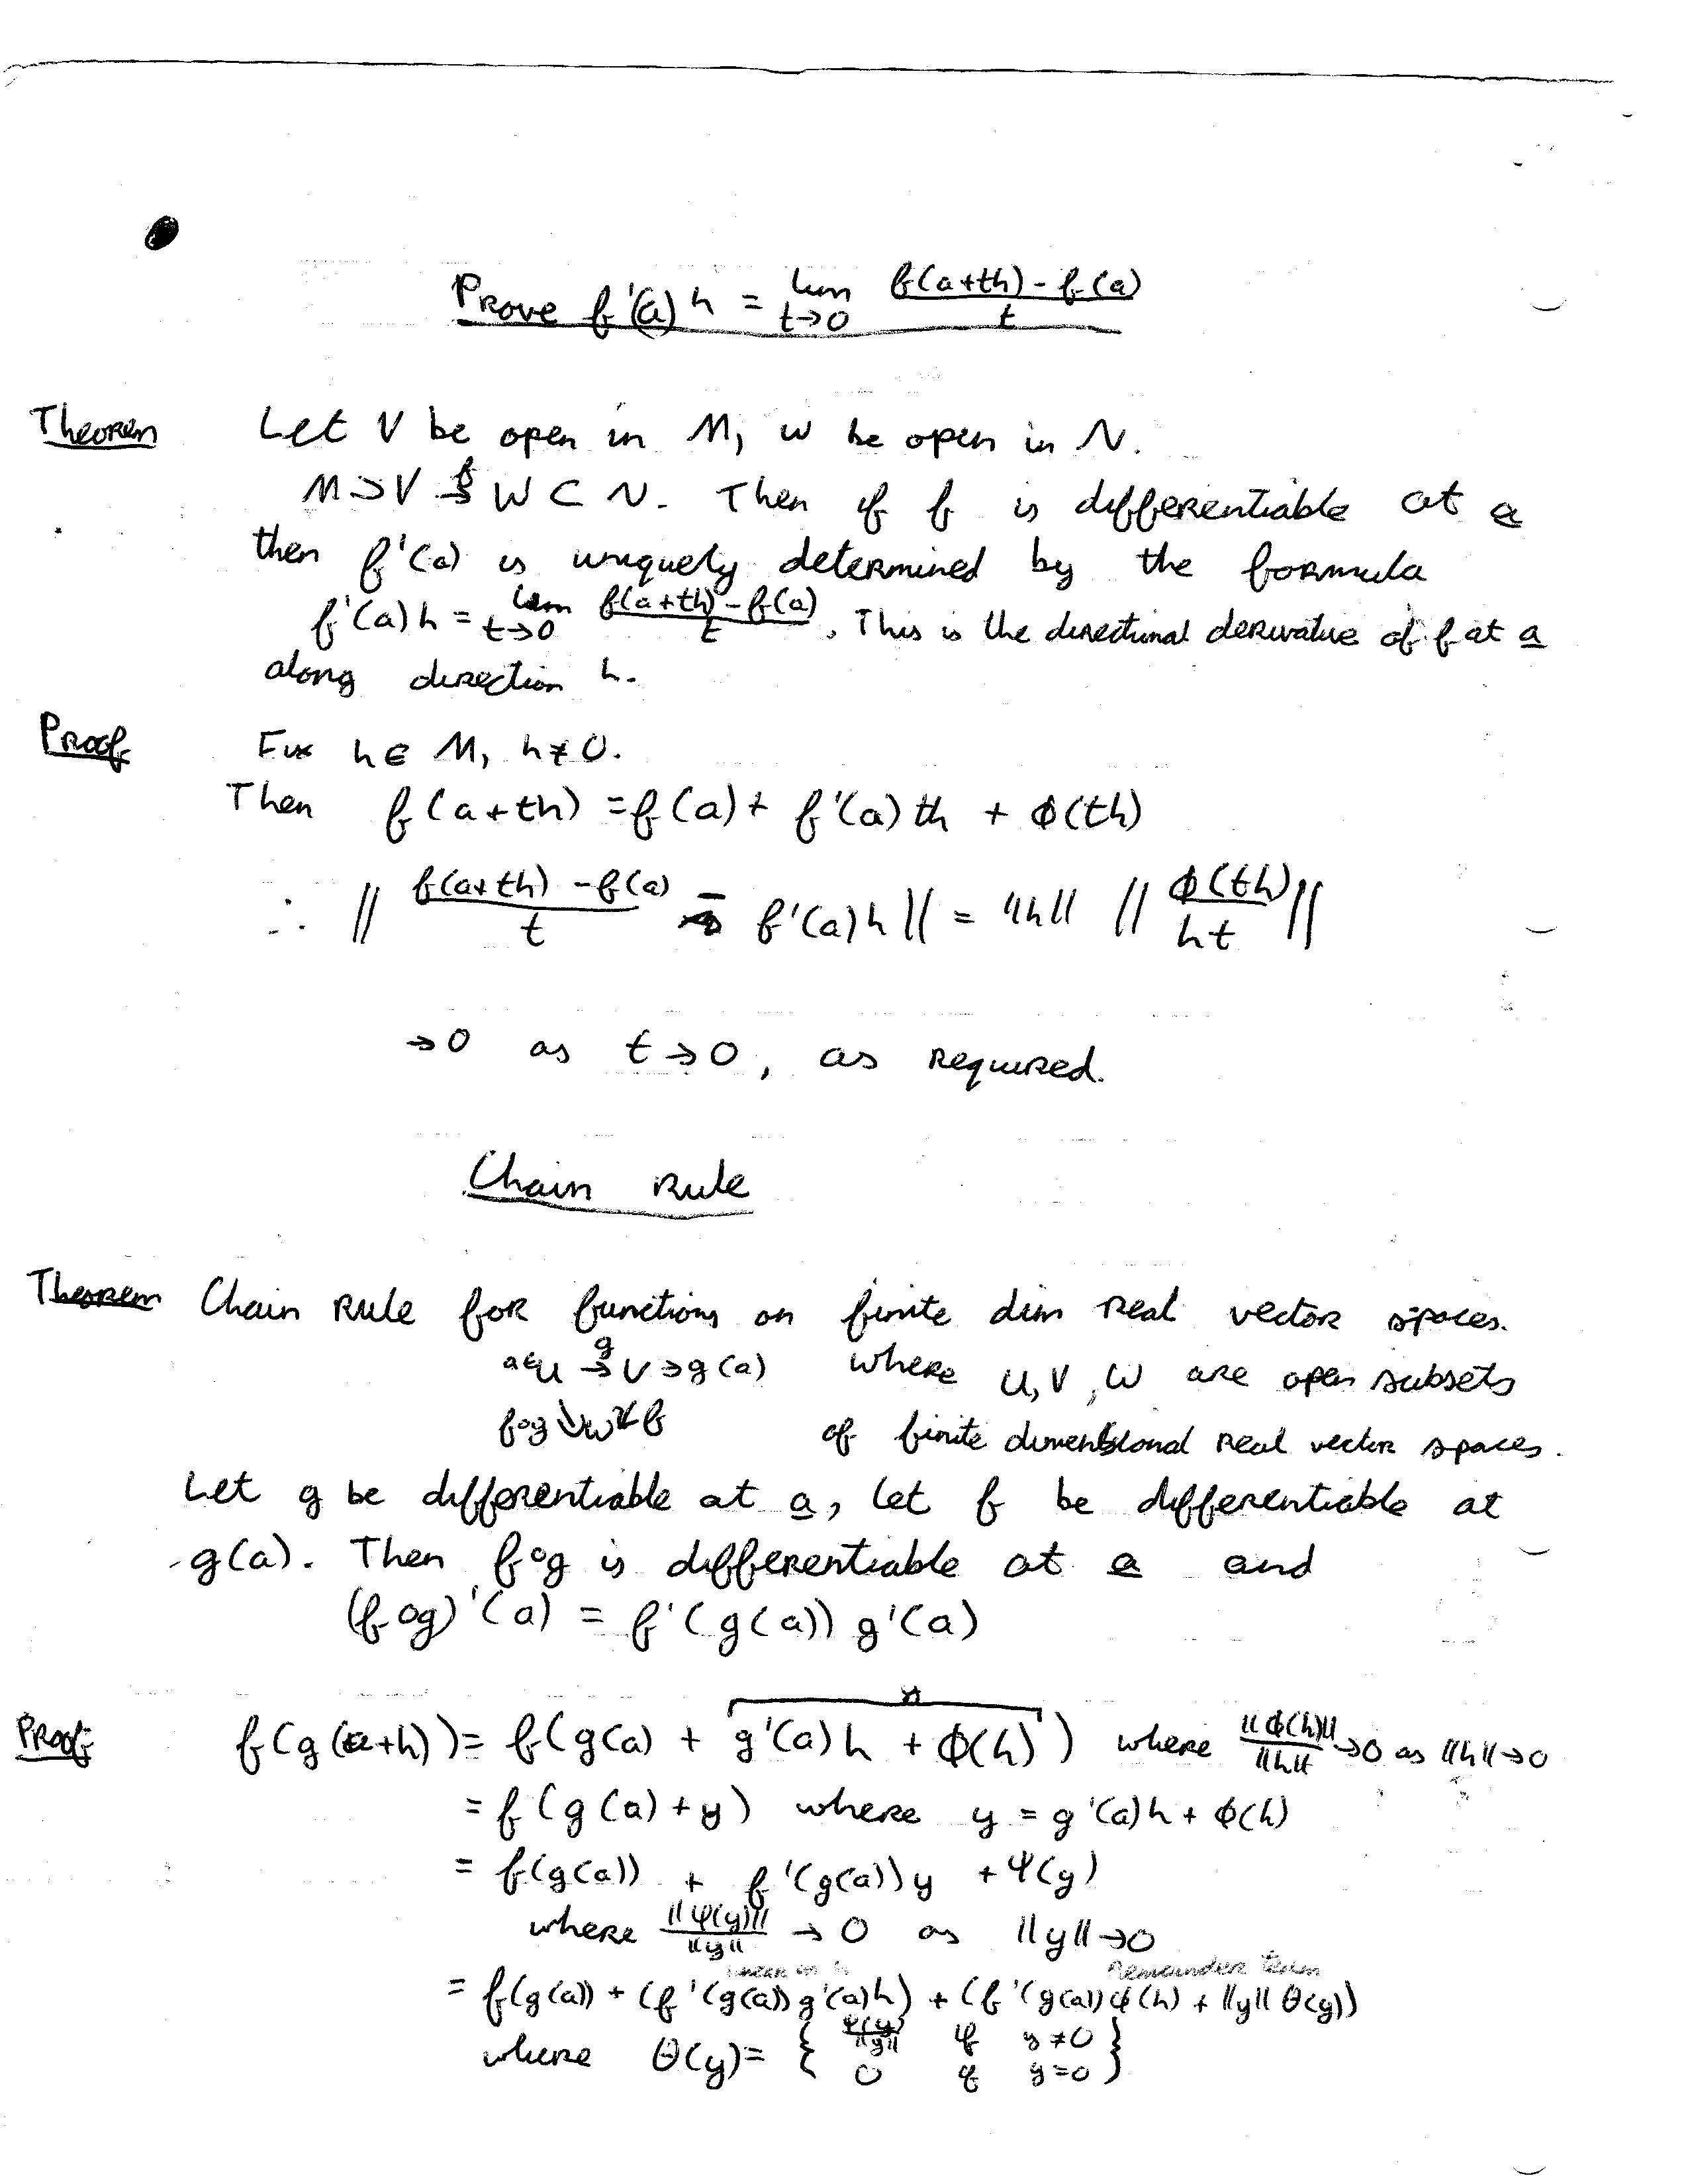 Prove f'(a)h = lim t→0 f(a+th) - f(a) / t
Theorem Let V be open in M, W be open in N.
M ⊃ V →f W ⊂ N. Then if f is differentiable at a
then f'(a) is uniquely determined by the formula
f'(a)h = lim t→0 f(a+th) - f(a) / t. This is the directional derivative of f at a
along direction h.
Proof Fix h ∈ M, h ≠ 0.
Then f(a+th) = f(a) + f'(a)th + ϕ(th)
∴ || f(a+th) - f(a) / t - f'(a)h || = ||h|| || ϕ(th) / ht ||
→ 0 as t → 0, as required.
Chain Rule
Theorem Chain Rule for functions on finite dim real vector spaces.
a ∈ U →g V ∋ g(a) where U, V, W are open subsets
f∘g ↘ W ↙ f of finite dimensional real vector spaces.
Let g be differentiable at a, let f be differentiable at
g(a). Then f∘g is differentiable at a and
(f∘g)'(a) = f'(g(a)) g'(a)
Proof f(g(a+h)) = f(g(a) + g'(a)h + ϕ(h)) where ||ϕ(h)|| / ||h|| → 0 as ||h|| → 0
= f(g(a) + y) where y = g'(a)h + ϕ(h)
= f(g(a)) + f'(g(a))y + ψ(y)
where ||ψ(y)|| / ||y|| → 0 as ||y|| → 0
linear in h remainder term
= f(g(a)) + (f'(g(a)) g'(a)h) + (f'(g(a)) ϕ(h) + ||y|| θ(y))
where θ(y) = { ψ(y) / ||y|| if y ≠ 0
0 if y = 0 }